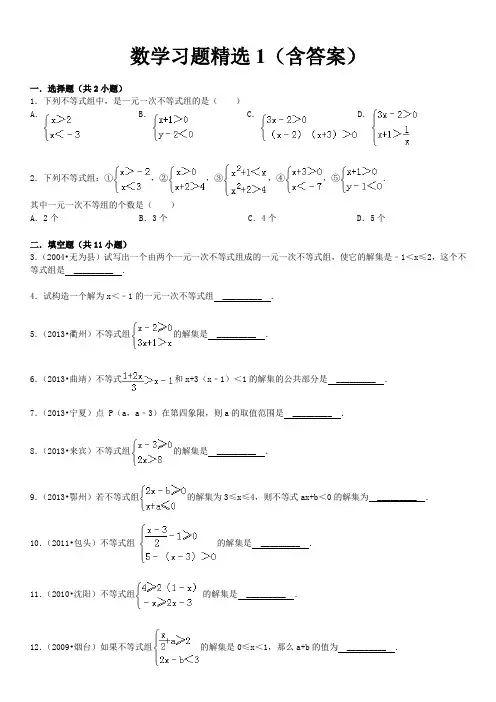 数学习题精选1（含答案）
一．选择题（共2小题）
1．下列不等式组中，是一元一次不等式组的是（　　）
A．{x＞2 x＜﹣3　B．{x+1＞0 y﹣2＜0　C．{3x﹣2＞0 （x﹣2）（x+3）＞0　D．{3x﹣2＞0 x+1＞1/x
2．下列不等式组：①{x＞﹣2 x＜3，②{x＞0 x+2＞4，③{x²+1＜x x²+2＞4，④{x+3＞0 x＜﹣7，⑤{x+1＞0 y﹣1＜0．
其中一元一次不等组的个数是（　　）
A．2个　B．3个　C．4个　D．5个
二．填空题（共11小题）
3．（2004•无为县）试写出一个由两个一元一次不等式组成的一元一次不等式组，使它的解集是﹣1＜x≤2，这个不
等式组是 _________ ．
4．试构造一个解为x＜﹣1的一元一次不等式组 _________ ．
5．（2013•衢州）不等式组{x﹣2≥0 3x+1＞x的解集是 _________ ．
6．（2013•曲靖）不等式(1+2x)/3＞x﹣1和x+3（x﹣1）＜1的解集的公共部分是 _________ ．
7．（2013•宁夏）点 P（a，a﹣3）在第四象限，则a的取值范围是 _________ ．
8．（2013•来宾）不等式组{x﹣3≥0 2x＞8的解集是 _________ ．
9．（2013•鄂州）若不等式组{2x﹣b≥0 x+a≤0的解集为3≤x≤4，则不等式ax+b＜0的解集为 _________ ．
10．（2011•包头）不等式组{(x﹣3)/2﹣1≥0 5﹣（x﹣3）＞0的解集是 _________ ．
11．（2010•沈阳）不等式组{4≥2（1﹣x） ﹣x≥2x﹣3的解集是 _________ ．
12．（2009•烟台）如果不等式组{x/2+a≥2 2x﹣b＜3的解集是0≤x＜1，那么a+b的值为 _________ ．